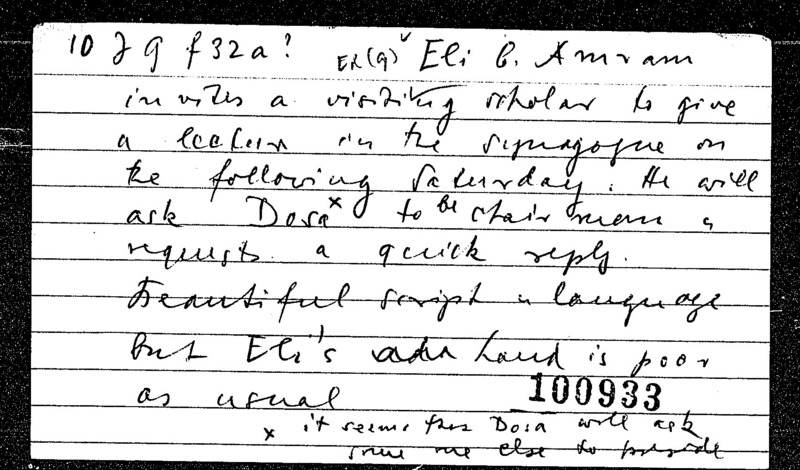 10 J 9 f 32a? ER(9) Eli b. Amram
invites a visiting scholar to give
a lecture in the synagogue on
the following Saturday. He will
ask Dosa x to be chairman &
requests a quick reply.
Beautiful script & language
but Eli's hand is poor
as usual
100933
x it seems that Dosa will ask
some one else to preside